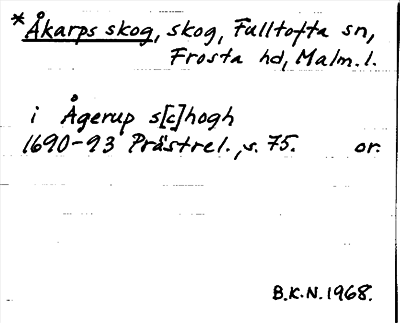 *Åkarps skog, skog, Fulltofta sn,
Frosta hd, Malm. l.
i Ågerup s[c]hogh
1690-93 Prästrel., s. 75. or.
B.K.N. 1968.